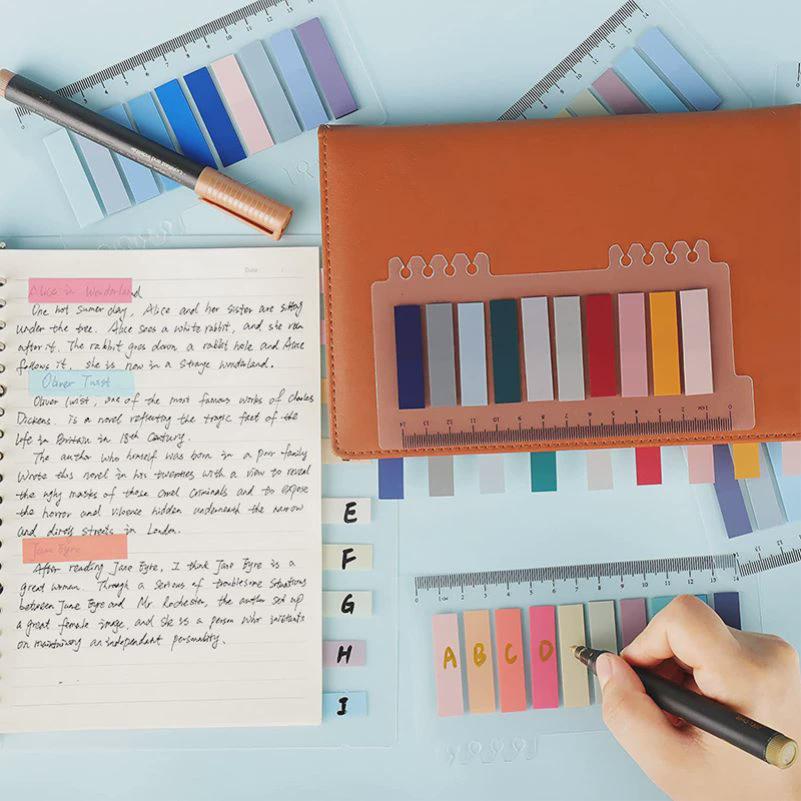 Date
Alice in Wonderland
One hot sumer day, Alice and her sister are sitting
under the tree. Alice sees a white rabbit, and she run
after it. The rabbit goes down a rabbit hole and Alice
follows it, she is now in a strange wonderland.
Oliver Twist
Oliver twist, one of the most famous works of Charles
Dickens. is a novel reflecting the tragic fact of the
life in Britain in 18th Century.
The author who himself was born in a poor family
wrote this novel in his twenties with a view to reveal
the ugly masks of those cruel criminals and to expose
the horror and vilence hidden underneath the narrow
and dirty streets in London.
Jane Eyre
After reading Jane Eyre, I think Jane Eyre is a
great woman. Through a serious of troublesome situations
between Jane Eyre and Mr. Rochester, the author set up
a great female image, and she is a person who insistants
on maintaining an independant personality.
E
F
G
H
I
14 13 12 11 10 9 8 7 6 5 4 3 2 1CM 0
0 1CM 2 3 4 5 6 7 8 9 10 11 12 13 14
A B C D